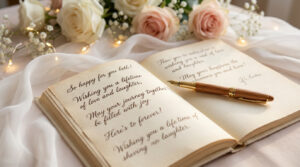 So happy for you both!
Wishing you a lifetime
of love and laughter.
May your journey together
be filled with joy
Here's to forever!
Wishing you a life time of
sharing no laughter.
you
and laughter.
May your happiness